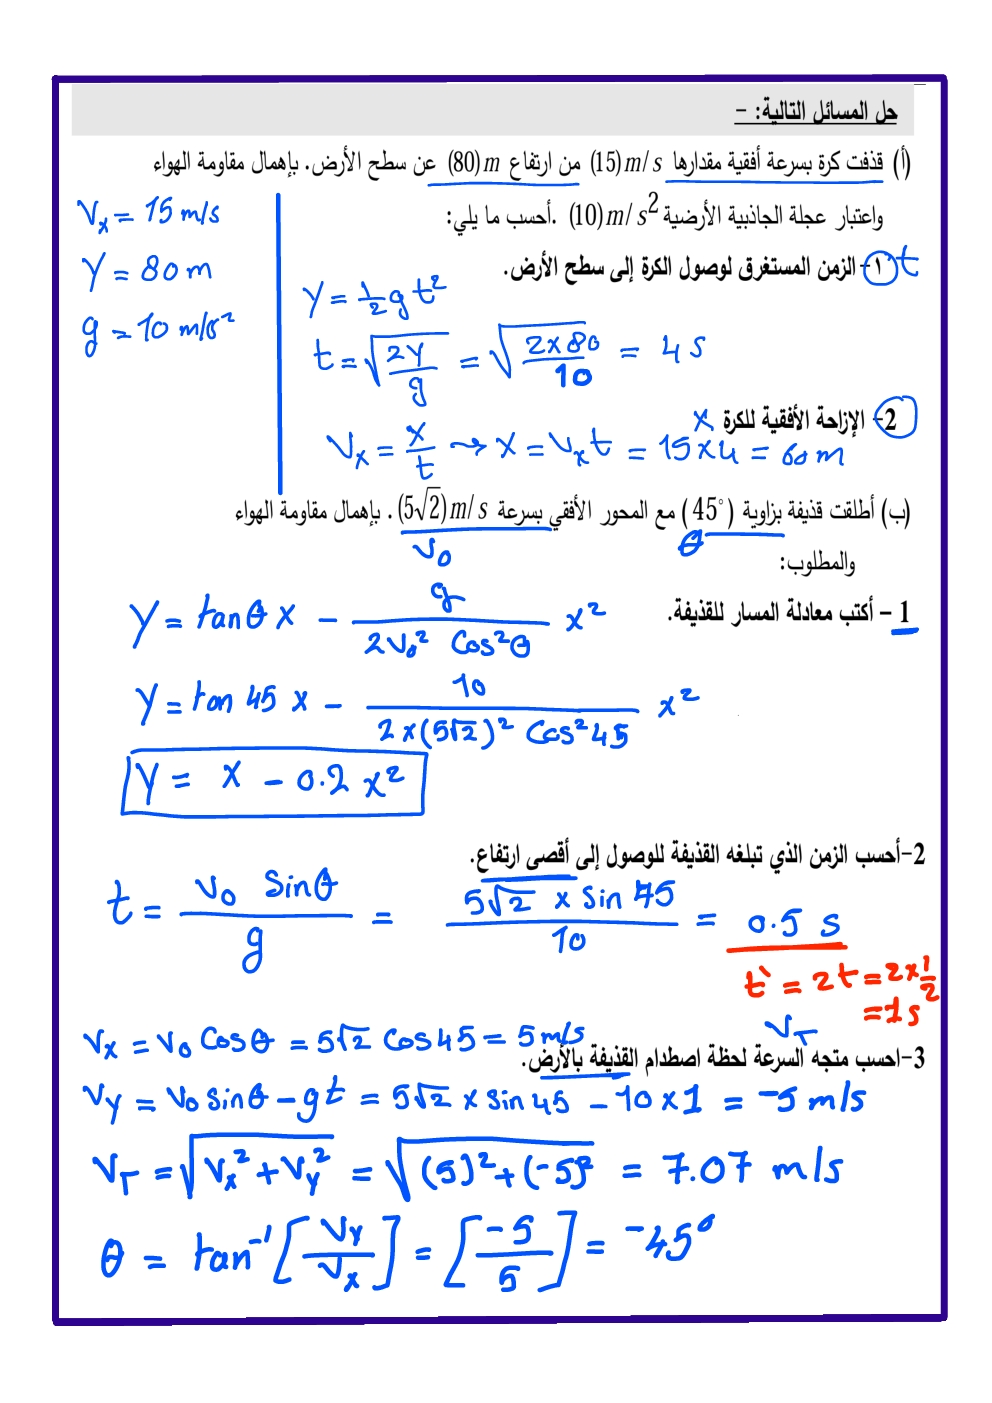 حل المسائل التالية: -
(أ) قذفت كرة بسرعة أفقية مقدارها (15)m/s من ارتفاع (80)m عن سطح الأرض. بإهمال مقاومة الهواء
واعتبار عجلة الجاذبية الأرضية (10)m/s² .أحسب ما يلي:
Vx = 15 m/s
Y = 80 m
g = 10 m/s²
١- الزمن المستغرق لوصول الكرة إلى سطح الأرض. t
Y = 1/2 g t²
t = √(2Y/g) = √(2×80/10) = 4 s
2- الإزاحة الأفقية للكرة x
Vx = x/t → x = Vx t = 15×4 = 60 m
(ب) أطلقت قذيفة بزاوية (45°) مع المحور الأفقي بسرعة (5√2)m/s . بإهمال مقاومة الهواء
θ V₀
والمطلوب:
1 – أكتب معادلة المسار للقذيفة.
Y = tanθ x − g/(2V₀² Cos²θ) x²
Y = tan 45 x − 10/(2×(5√2)² Cos²45) x²
Y = x − 0.2 x²
2-أحسب الزمن الذي تبلغه القذيفة للوصول إلى أقصى ارتفاع.
t = V₀ Sinθ/g = 5√2 × Sin 45/10 = 0.5 s
t` = 2t = 2×1/2
= 1 s
VT
3-احسب متجه السرعة لحظة اصطدام القذيفة بالأرض.
Vx = V₀ Cosθ = 5√2 Cos45 = 5 m/s
Vy = V₀ Sinθ − gt = 5√2 × Sin 45 − 10×1 = −5 m/s
VT = √(Vx² + Vy²) = √((5)² + (−5)²) = 7.07 m/s
θ = tan⁻¹[Vy/Vx] = [−5/5] = −45°